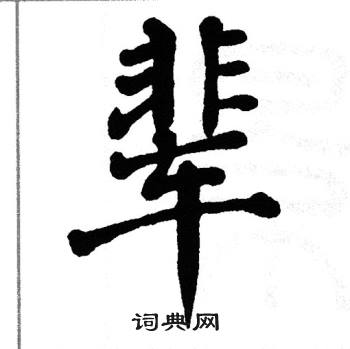 辈
词典网